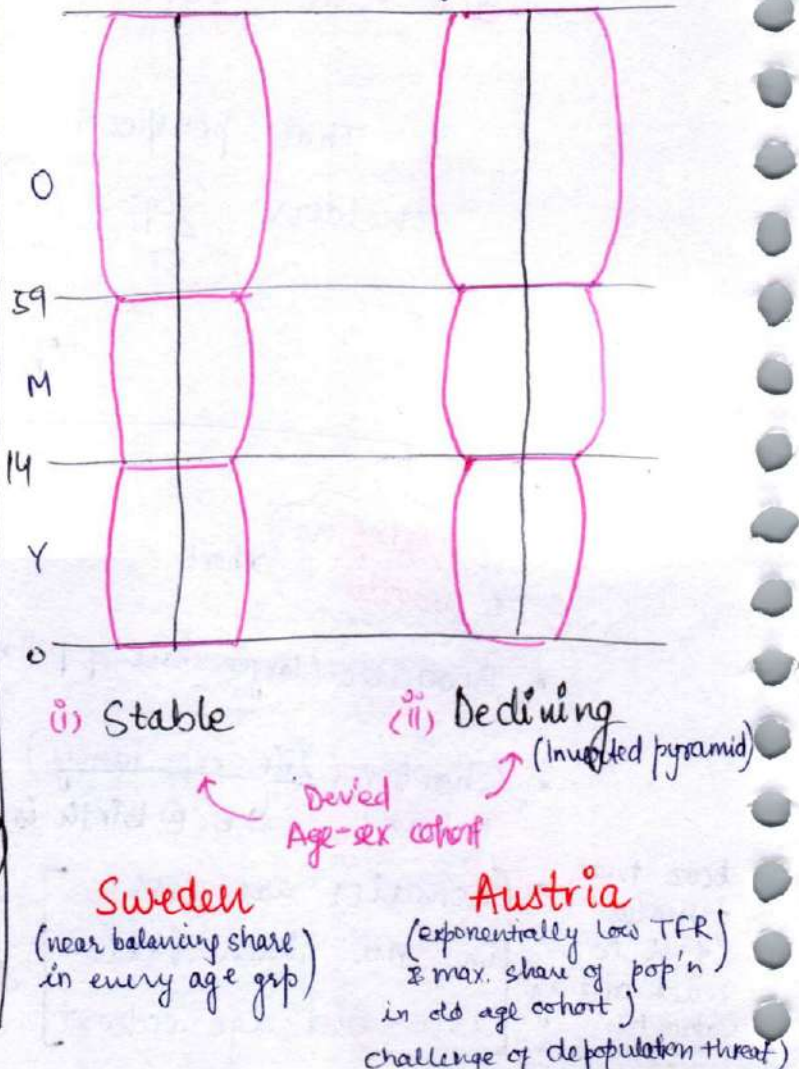 O
59
M
14
Y
0
(i) Stable
(ii) Declining
(Inverted pyramid)
Dev'ed
Age-sex cohort
Sweden
(near balancing share
in every age grp)
Austria
(exponentially low TFR)
& max. share of pop'n
in old age cohort)
challenge of depopulation threat)